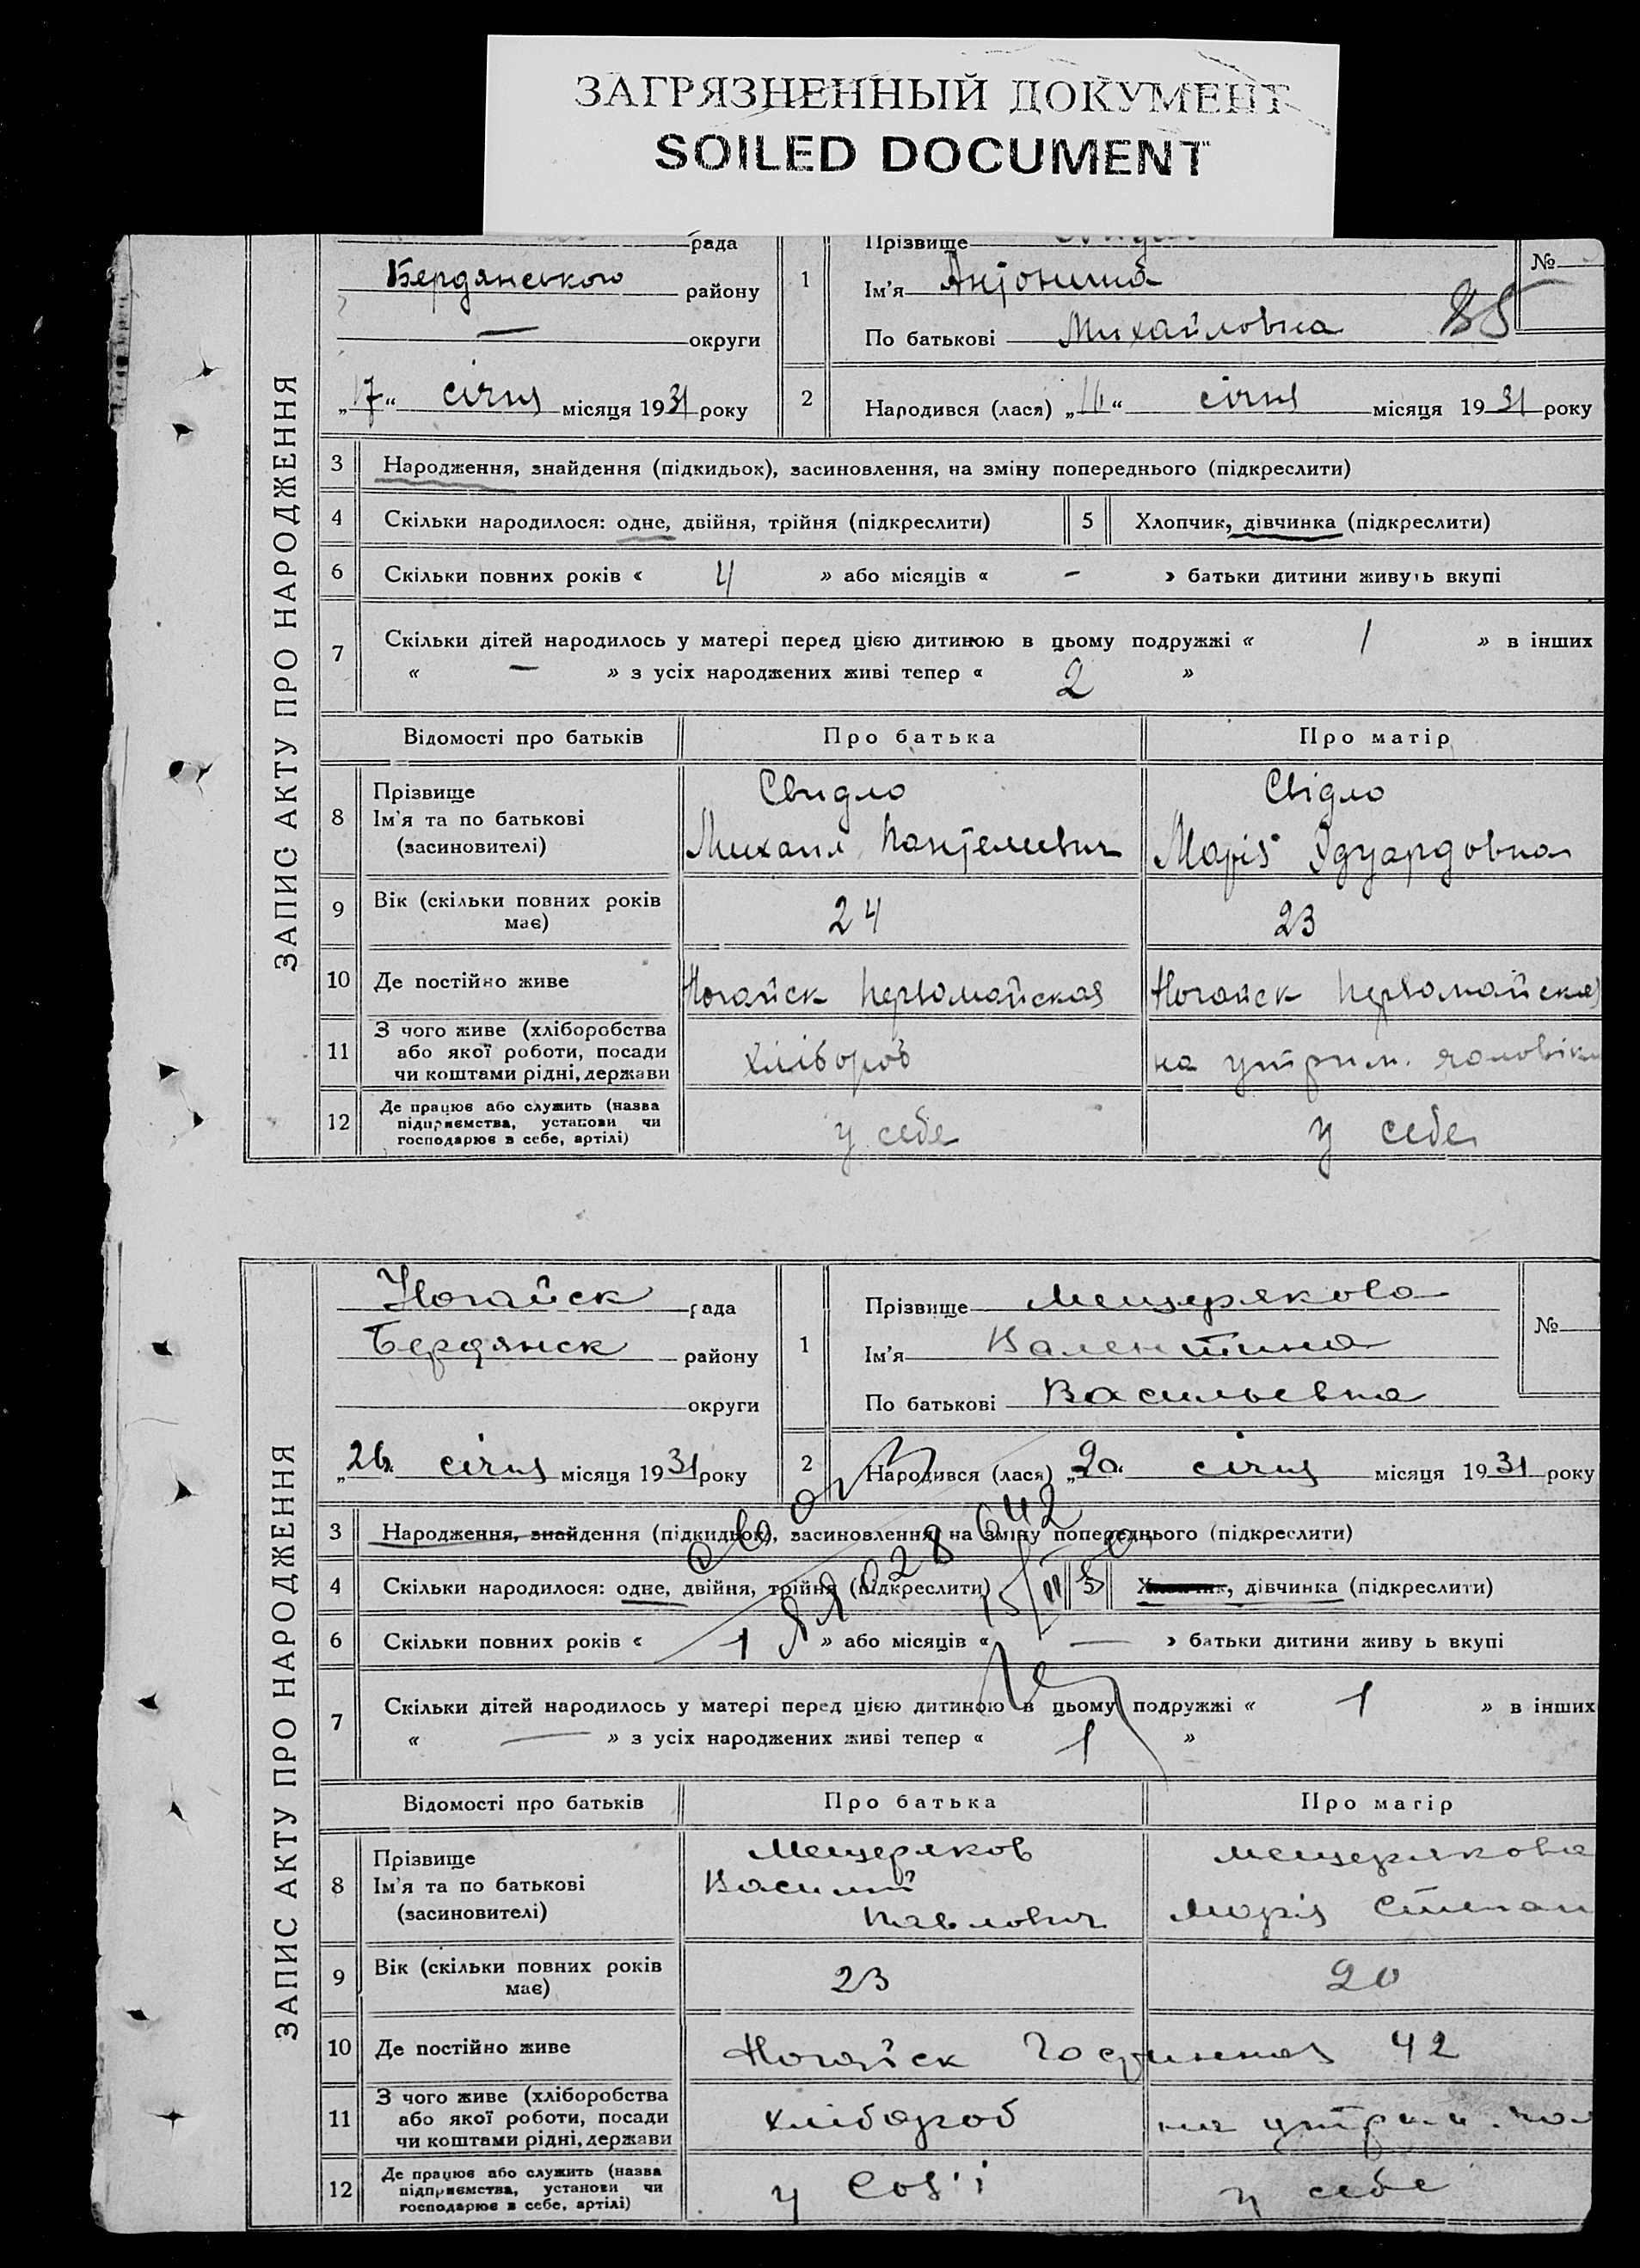 ЗАГРЯЗНЕННЫЙ ДОКУМЕНТ
SOILED DOCUMENT
ЗАПИС АКТУ ПРО НАРОДЖЕННЯ
рада
Бердянського району
— округи
„17“ січня місяця 1931 року
1 Прізвище
Ім'я Антонина
По батькові Михайловна
№
85
2 Народився (лася) „11“ січня місяця 1931 року
3 Народження, знайдення (підкидьок), засиновлення, на зміну попереднього (підкреслити)
4 Скільки народилося: одне, двійня, трійня (підкреслити) 5 Хлопчик, дівчинка (підкреслити)
6 Скільки повних років « 4 » або місяців « - » батьки дитини живуть вкупі
7 Скільки дітей народилось у матері перед цією дитиною в цьому подружжі « 1 » в інших
« — » з усіх народжених живі тепер « 2 »
Відомості про батьків Про батька Про матір
8 Прізвище Свидло Свідло
Ім'я та по батькові Михаил Пантелиевич Марія Едуардовна
(засиновителі)
9 Вік (скільки повних років має) 24 23
10 Де постійно живе Ногайск Первомайская Ногайск Первомайская
11 З чого живе (хліборобства
або якої роботи, посади хлібороб на утрим. чоловіка
чи коштами рідні, держави
12 Де працює або служить (назва
підприємства, установи чи у себе у себе
господарює в себе, артілі)
ЗАПИС АКТУ ПРО НАРОДЖЕННЯ
Ногайск рада
Бердянск району
округи
„26“ січня місяця 1931 року
1 Прізвище Мещерякова
Ім'я Валентина
По батькові Васильевна
№
2 Народився (лася) „20“ січня місяця 1931 року
3 Народження, знайдення (підкидьок), засиновлення, на зміну попереднього (підкреслити)
4 Скільки народилося: одне, двійня, трійня (підкреслити) 5 Хлопчик, дівчинка (підкреслити)
6 Скільки повних років « 1 » або місяців « — » батьки дитини живу ь вкупі
7 Скільки дітей народилось у матері перед цією дитиною в цьому подружжі « 1 » в інших
« — » з усіх народжених живі тепер « 1 »
Відомості про батьків Про батька Про матір
8 Прізвище Мещеряков Мещерякова
Ім'я та по батькові Василий Павлович Марія Степан
(засиновителі)
9 Вік (скільки повних років має) 23 20
10 Де постійно живе Ногайск 42
11 З чого живе (хліборобства
або якої роботи, посади хлібороб на утрим. чол
чи коштами рідні, держави
12 Де працює або служить (назва
підприємства, установи чи у соб'і у себе
господарює в себе, артілі)